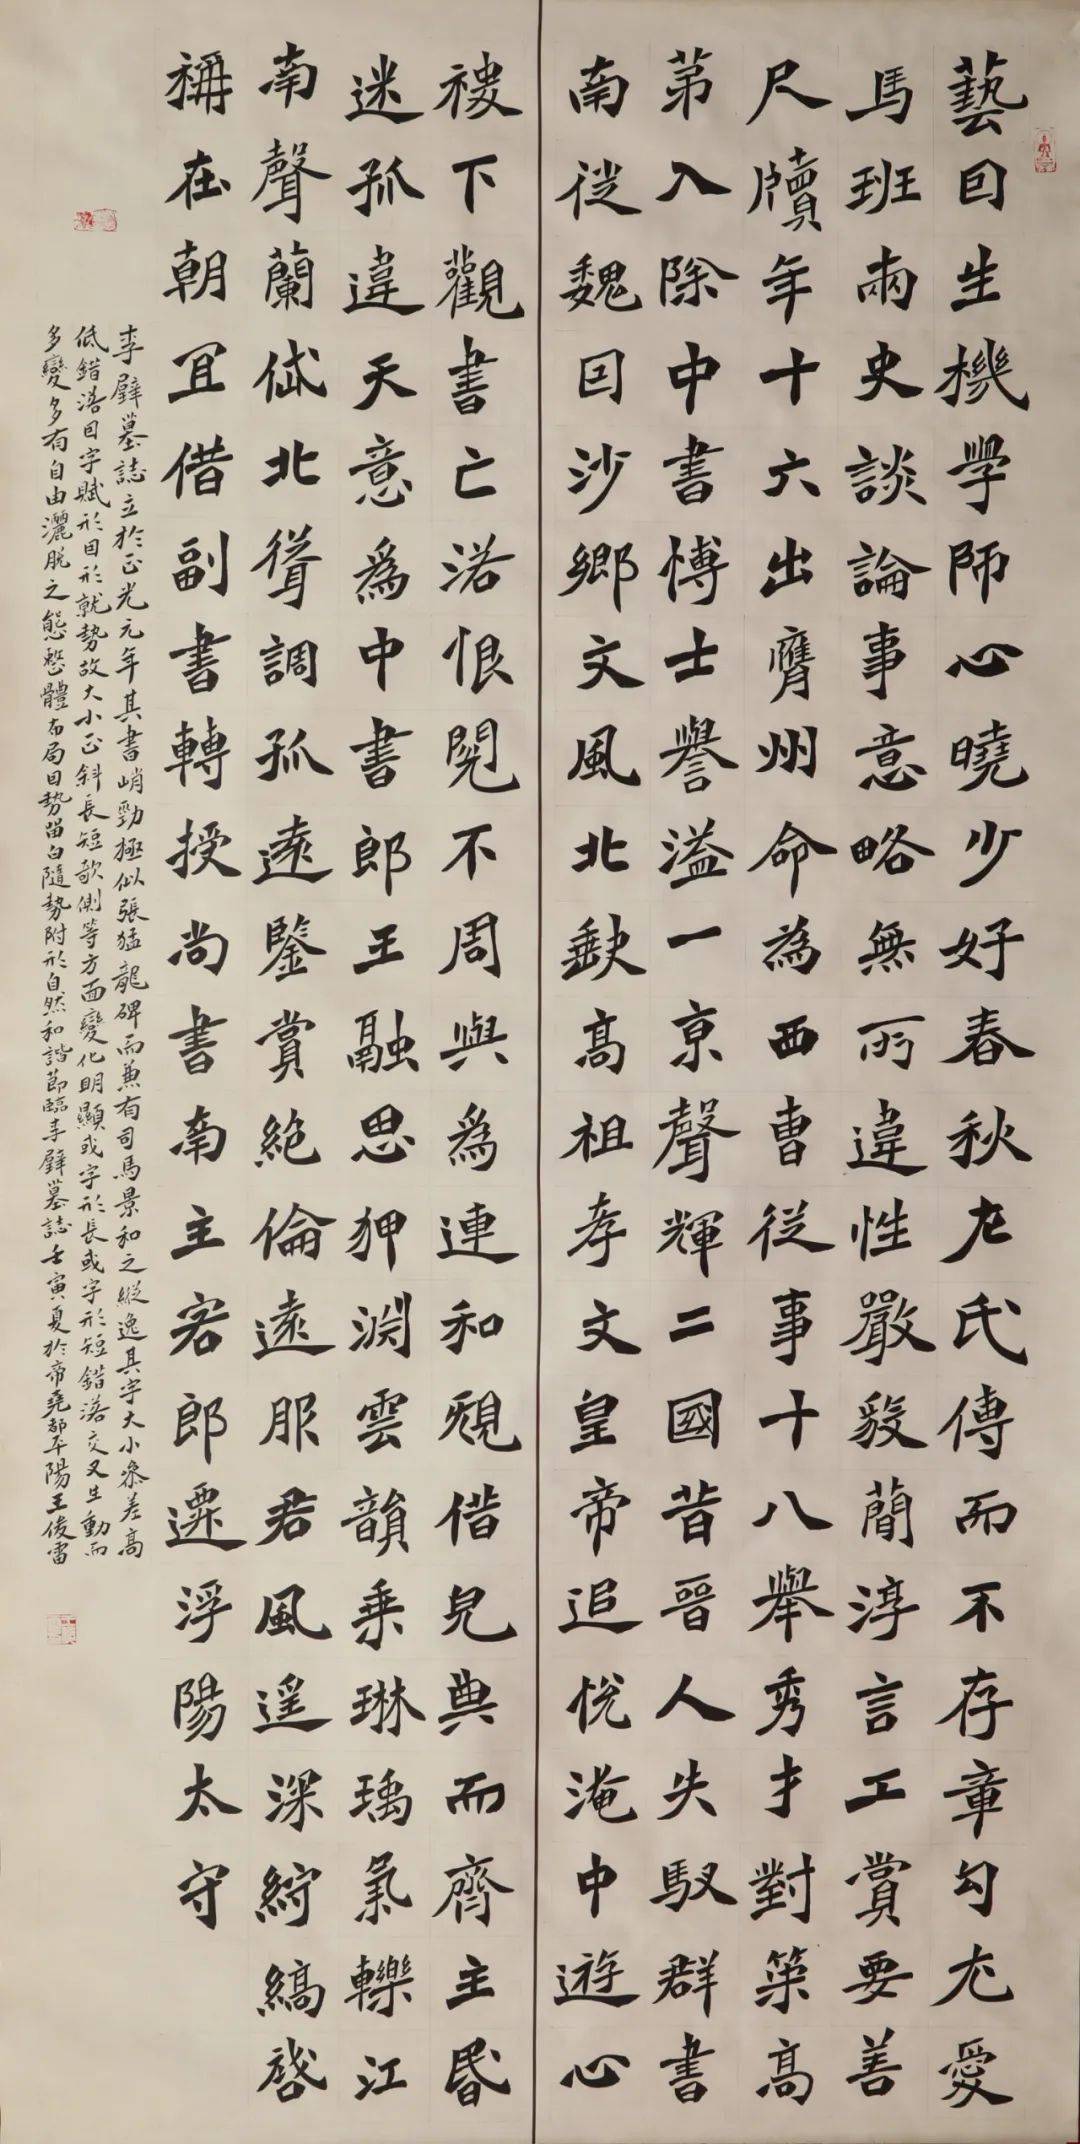 藝囙生機學師心曉少好春秋左氏傳而不存章句尤愛
馬班兩史談論事意略無所違性嚴毅簡淳言工賞要善
尺牘年十六出膺州命為西曹從事十八舉秀才對策高
第入除中書博士譽溢一京聲輝二國昔晉人失馭群書
南從魏囙沙鄉文風北缺高祖孝文皇帝追悅淹中遊心
禝下觀書亡落恨閱不周與為連和規借完典而齊主昏
迷孤違天意為中書郎王融思狎淵雲韻乘琳瑀氣轢江
南聲蘭岱北聳調孤遠鑒賞絕倫遠服君風遙深紵縞啓
稱在朝宜借副書轉授尚書南主客郎遷浮陽太守
李璧墓誌立於正光元年其書峭勁極似張猛龍碑而兼有司馬景和之縱逸其字大小參差高
低錯落因字賦形因形就勢故大小正斜長短欹側等方面變化明顯或字形長或字形短錯落交叉生動而
多變多有自由灑脫之態整體布局因勢留白隨勢附形自然和諧節臨李璧墓誌壬寅夏於帝堯都平陽王俊雷